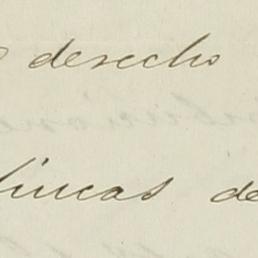 derecho
fincas de